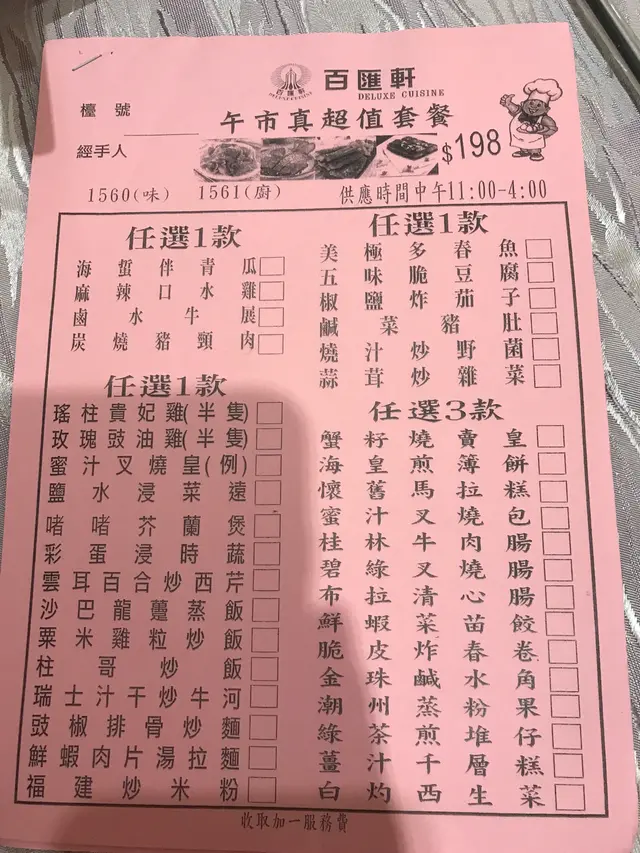 百匯軒
DELUXE CUISINE
檯號
午市真超值套餐
經手人
$198
1560(味) 1561(廚) 供應時間中午11:00-4:00
任選1款
海蜇伴青瓜
麻辣口水雞
鹵水牛展
炭燒豬頸肉
任選1款
瑤柱貴妃雞(半隻)
玫瑰豉油雞(半隻)
蜜汁叉燒皇(例)
鹽水浸菜遠
啫啫芥蘭煲
彩蛋浸時蔬
雲耳百合炒西芹
沙巴龍躉蒸飯
粟米雞粒炒飯
柱哥炒飯
瑞士汁干炒牛河
豉椒排骨炒麵
鮮蝦肉片湯拉麵
福建炒米粉
任選1款
美極多春魚
五味脆豆腐
椒鹽炸茄子
鹹菜豬肚
燒汁炒野菌
蒜茸炒雜菜
任選3款
蟹籽燒賣皇
海皇煎薄餅
懷舊馬拉糕
蜜汁叉燒包
桂林牛肉腸
碧綠叉燒腸
布拉清心腸
鮮蝦菜苗餃
脆皮炸春卷
金珠鹹水角
潮州蒸粉果
綠茶煎堆仔
薑汁千層糕
白灼西生菜
收取加一服務費